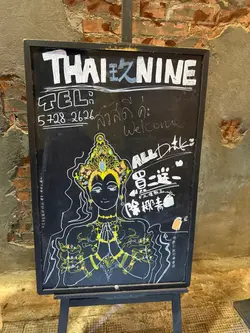 THAI玖NINE
TEL:
5728 2626
สวัสดี ค่ะ
Welcome
ALL DAY:
買一送一